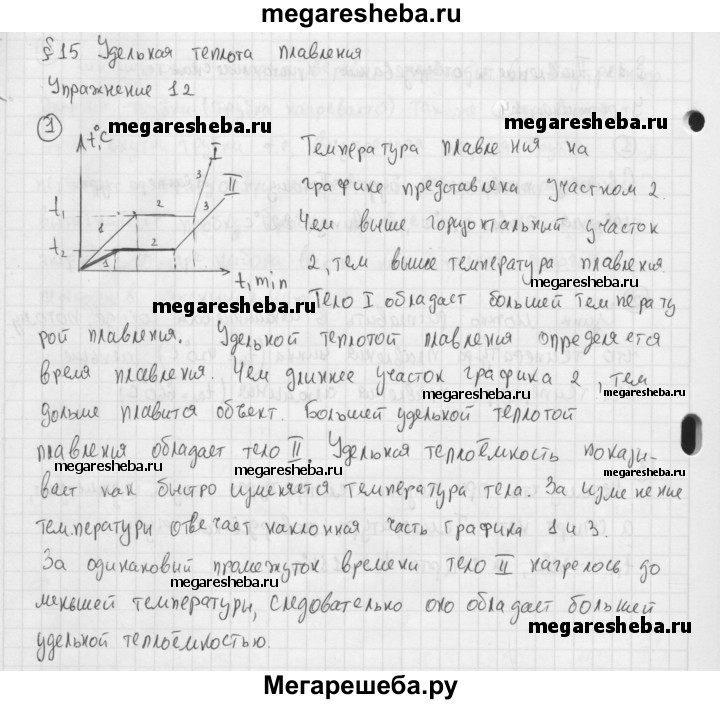 megaresheba.ru
§15 Удельная теплота плавления
Упражнение 12
1
megaresheba.ru
megaresheba.ru
t,°C
I
II
3
3
t₁
t₂
1
2
2
1
t, min
Температура плавления на
графике представлена участком 2.
Чем выше горизонтальный участок
2, тем выше температура плавления
megaresheba.ru
Тело I обладает большей температу
рой плавления. Удельной теплотой плавления определяется
время плавления. Чем длиннее участок графика 2, тем
дольше плавится объект. Большей удельной теплотой
плавления обладает тело II. Удельная теплоёмкость показы-
megaresheba.ru
megaresheba.ru
megaresheba.ru
вает как быстро изменяется температура тела. За изменение
температури отвечает наклонная часть графика 1 и 3.
За одинаковий промежуток времени тело II нагрелось до
megaresheba.ru
меньшей температури, следовательно оно обладает большей
megaresheba.ru
удельной теплоёмкостью.
Мегарешеба.ру